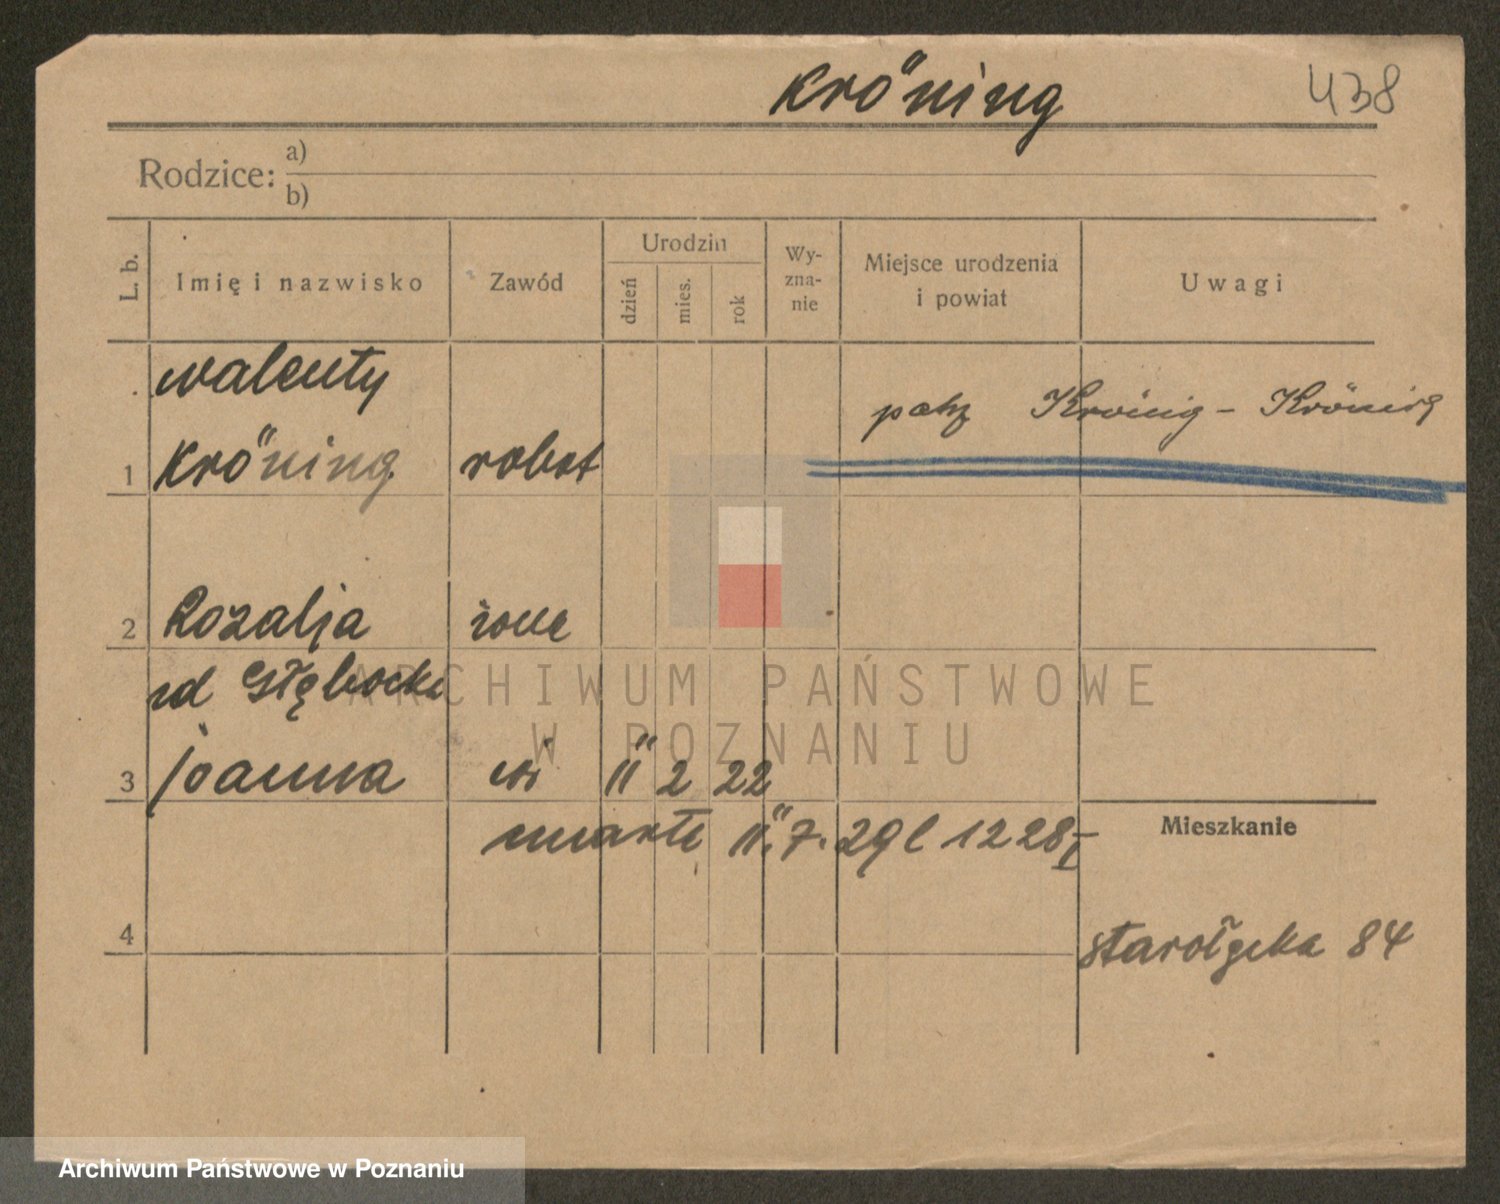 Kröning 438
Rodzice: a)
b)
L. b. Imię i nazwisko Zawód Urodzin dzień mies. rok Wy-zna-nie Miejsce urodzenia i powiat Uwagi
Walenty
patrz Krönig - Kröning
1 Kröning robot
2 Rozalja żona
zd Głębocka
3 Joanna 11 2 22
zmarła 11. 7. 29 l 1228
Mieszkanie
4
Starołęcka 84
ARCHIWUM PAŃSTWOWE
W POZNANIU
Archiwum Państwowe w Poznaniu